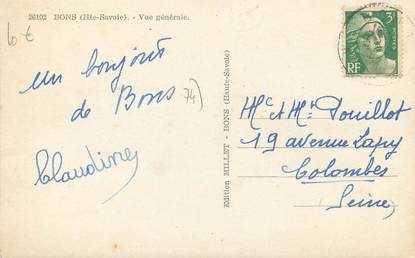 26102 BONS (Hte-Savoie). - Vue générale.
6 €
un bonjour
de Bons
74)
Claudine
Edition MILLET - BONS (Haute-Savoie)
3F
POSTES
RF
Mr et Me Pouillot
19 avenue Lapy
Colombes
Seine